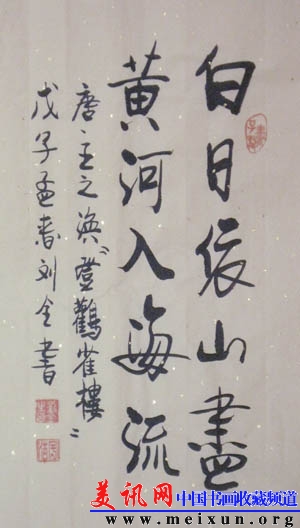 白日依山盡
黄河入海流
唐王之涣《登鸛雀樓》
戊子孟春刘全書
美讯网 中国书画收藏频道
www.meixun.org